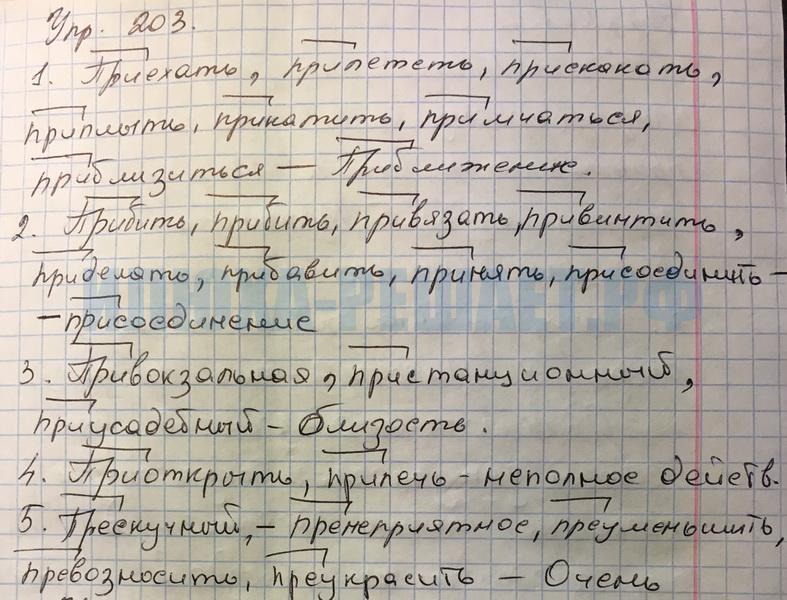 Упр. 203.
1. Приехать, прилететь, прискакать,
приплыть, прикатить, примчаться,
приблизиться — Приближение.
2. Прибить, прибить, привязать, привинтить,
приделать, прибавить, принять, присоединить –
– присоединение
3. Привокзальная, пристанционный,
приусадебный – близость.
4. Приоткрыть, прилечь – неполное действ.
5. Прескучный, – пренеприятное, преуменьшить,
превозносить, преукрасить – Очень